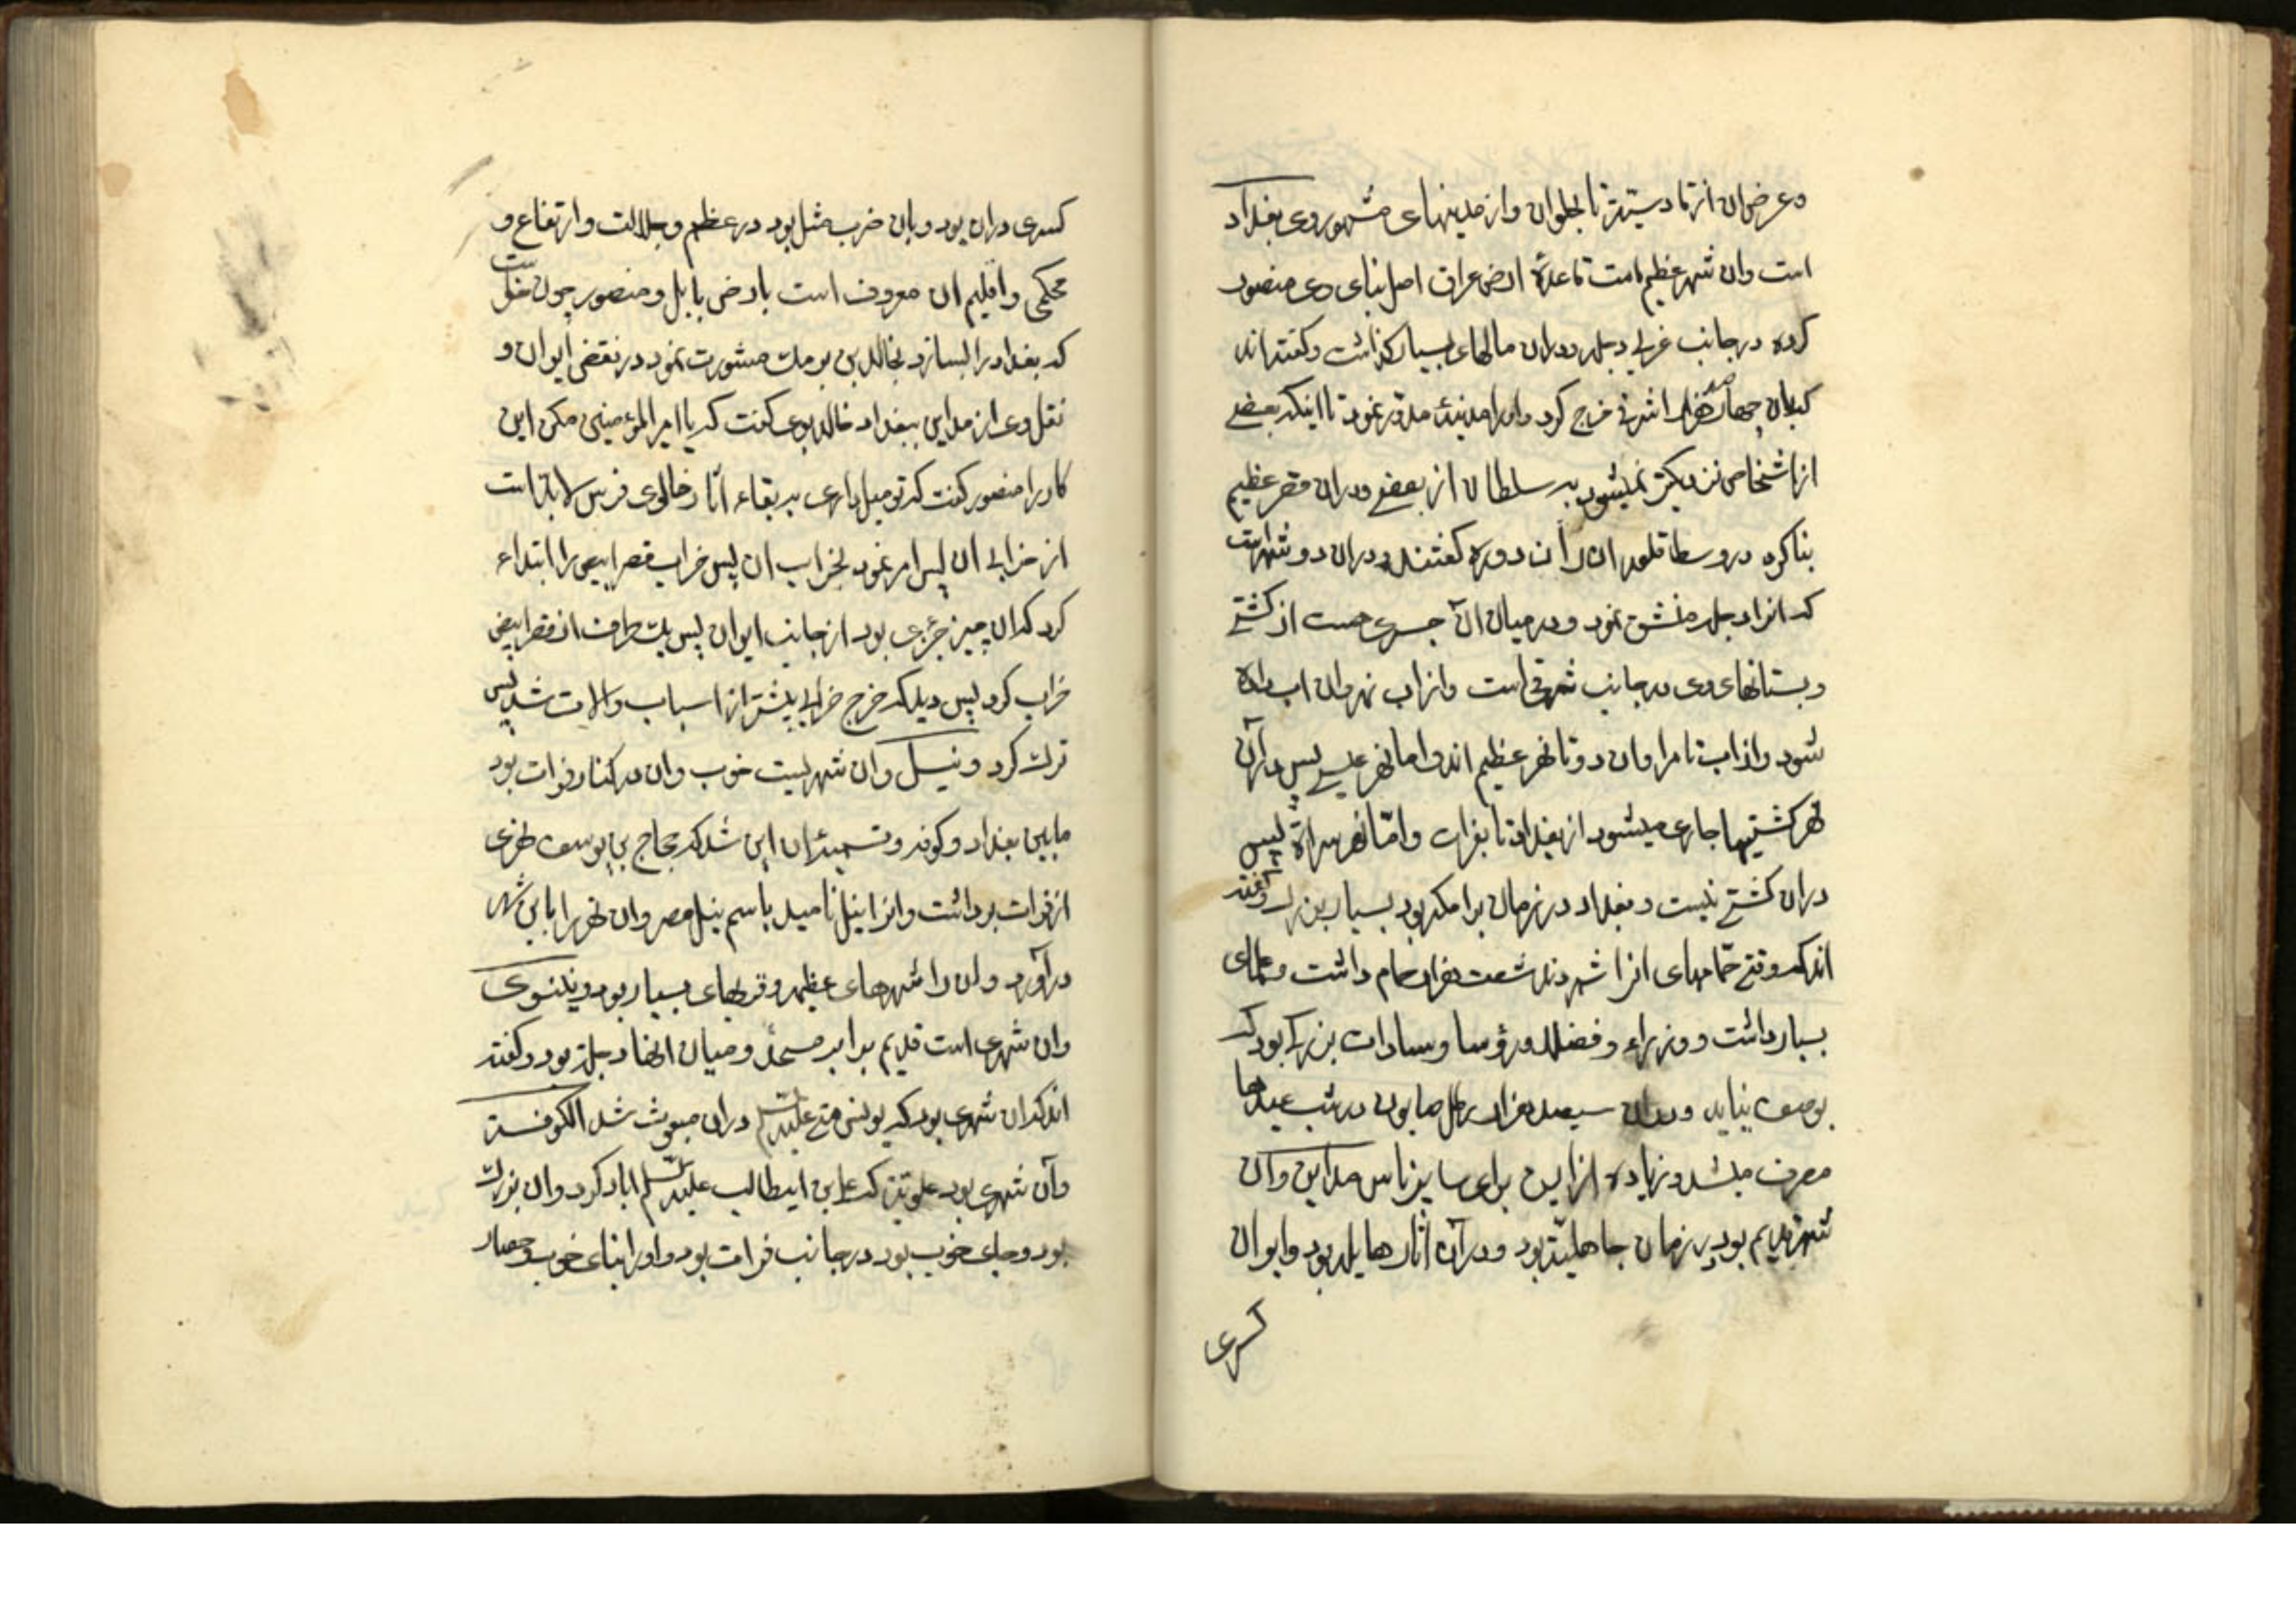 وعرض ان از قادسیته تا بحلوان واز مدینهای مشهور وی بغداد
است وان شهر عظیم است قاعدهٔ ارض عراق اصل بنای وی منصور
کرده در جانب غربی دجله ودران مالهای بسیار کذاشت وکفته اند
که بان چهار صد هزار اشرفی خرج کرد وانرا مدینهٔ مدور نمود تا اینکه بعضی
از اشخاص نزدیکتر نمیشود به سلطان از بعضی ودران قصر عظیم
بنا کرده در وسط قلعه ان دوره کفتند ودران دو شهر است
که انرا دجله منشق نمود ودر میان ان جسری هست از کشتی
وبستانهای وی در جانب شرقی است واز اب نهروان اب داده
شود واز اب تامرا وان دو تا نهر عظیم اند واما نهر عیسی پس در آن
نهر کشتیها جاری میشود از بغداد تا بفرات وامّا نهر سراة پس
دران کشتی نیست وبغداد در زمان برامکه بود بسیار بزرك وکفته
اند که وقتی حمّامهای انرا شمردند شصت هزار حمام داشت وعلمای
بسیار داشت ووزراء وفضلا ورؤسا وسادات بزرك بود که
بوصف نیاید ودران سیصد هزار رطل صابون در شب عیدها
مصرف میشد وزیاده از این برای سایر ناس مداین وآن
شهر قدیم بود در زمان جاهلیّة بود ودر آن اثار هایله بود وایوان
کسری
کسری دران بود وبان ضرب مثل بود در عظم وجلالت وارتفاع و
محکمی واقلیم ان معروف است بارض بابل ومنصور چون خواست
که بغداد را بسازد بخالد بن برمك مشورت نمود در نقض ایوان و
نقل وی از مداین ببغداد خالد بوی کفت که یا امیر المؤمنین مکن این
کار را منصور کفت که تو میل داری به بقاء اثار خالوی فرس لابد است
از خرابی ان پس امر نمود بخراب ان پس خراب قصر ابیض را ابتداء
کرد که ان چیز جزئی بود از جانب ایوان پس یك طرف از قصر ابیض
خراب کرد پس دید که خرج خرابی بیشتر از اسباب والات شد پس
ترك کرد ونیل وان شهریست خوب وان در کنار فرات بود
مابین بغداد وکوفه وتسمیهٔ ان این شد که حجاج بن یوسف نهری
از فرات برداشت وانرا نیل نامید باسم نیل مصر وان نهر را باین شهر
درآورد وان را شهرهای عظیم وقریهای بسیار بود ونینوی
وان شهری است قدیم برابر موصل ومیان انها دجله بود وکفته
اند که ان شهری بود که یونس متی علیه السلم دران مبعوث شد الکوفة
وآن شهری بود علویّة که علی بن ابیطالب علیه السلم اباد کرد وان بزرك
بود وجای خوب بود در جانب فرات بود واورا بنای خوب وحصار